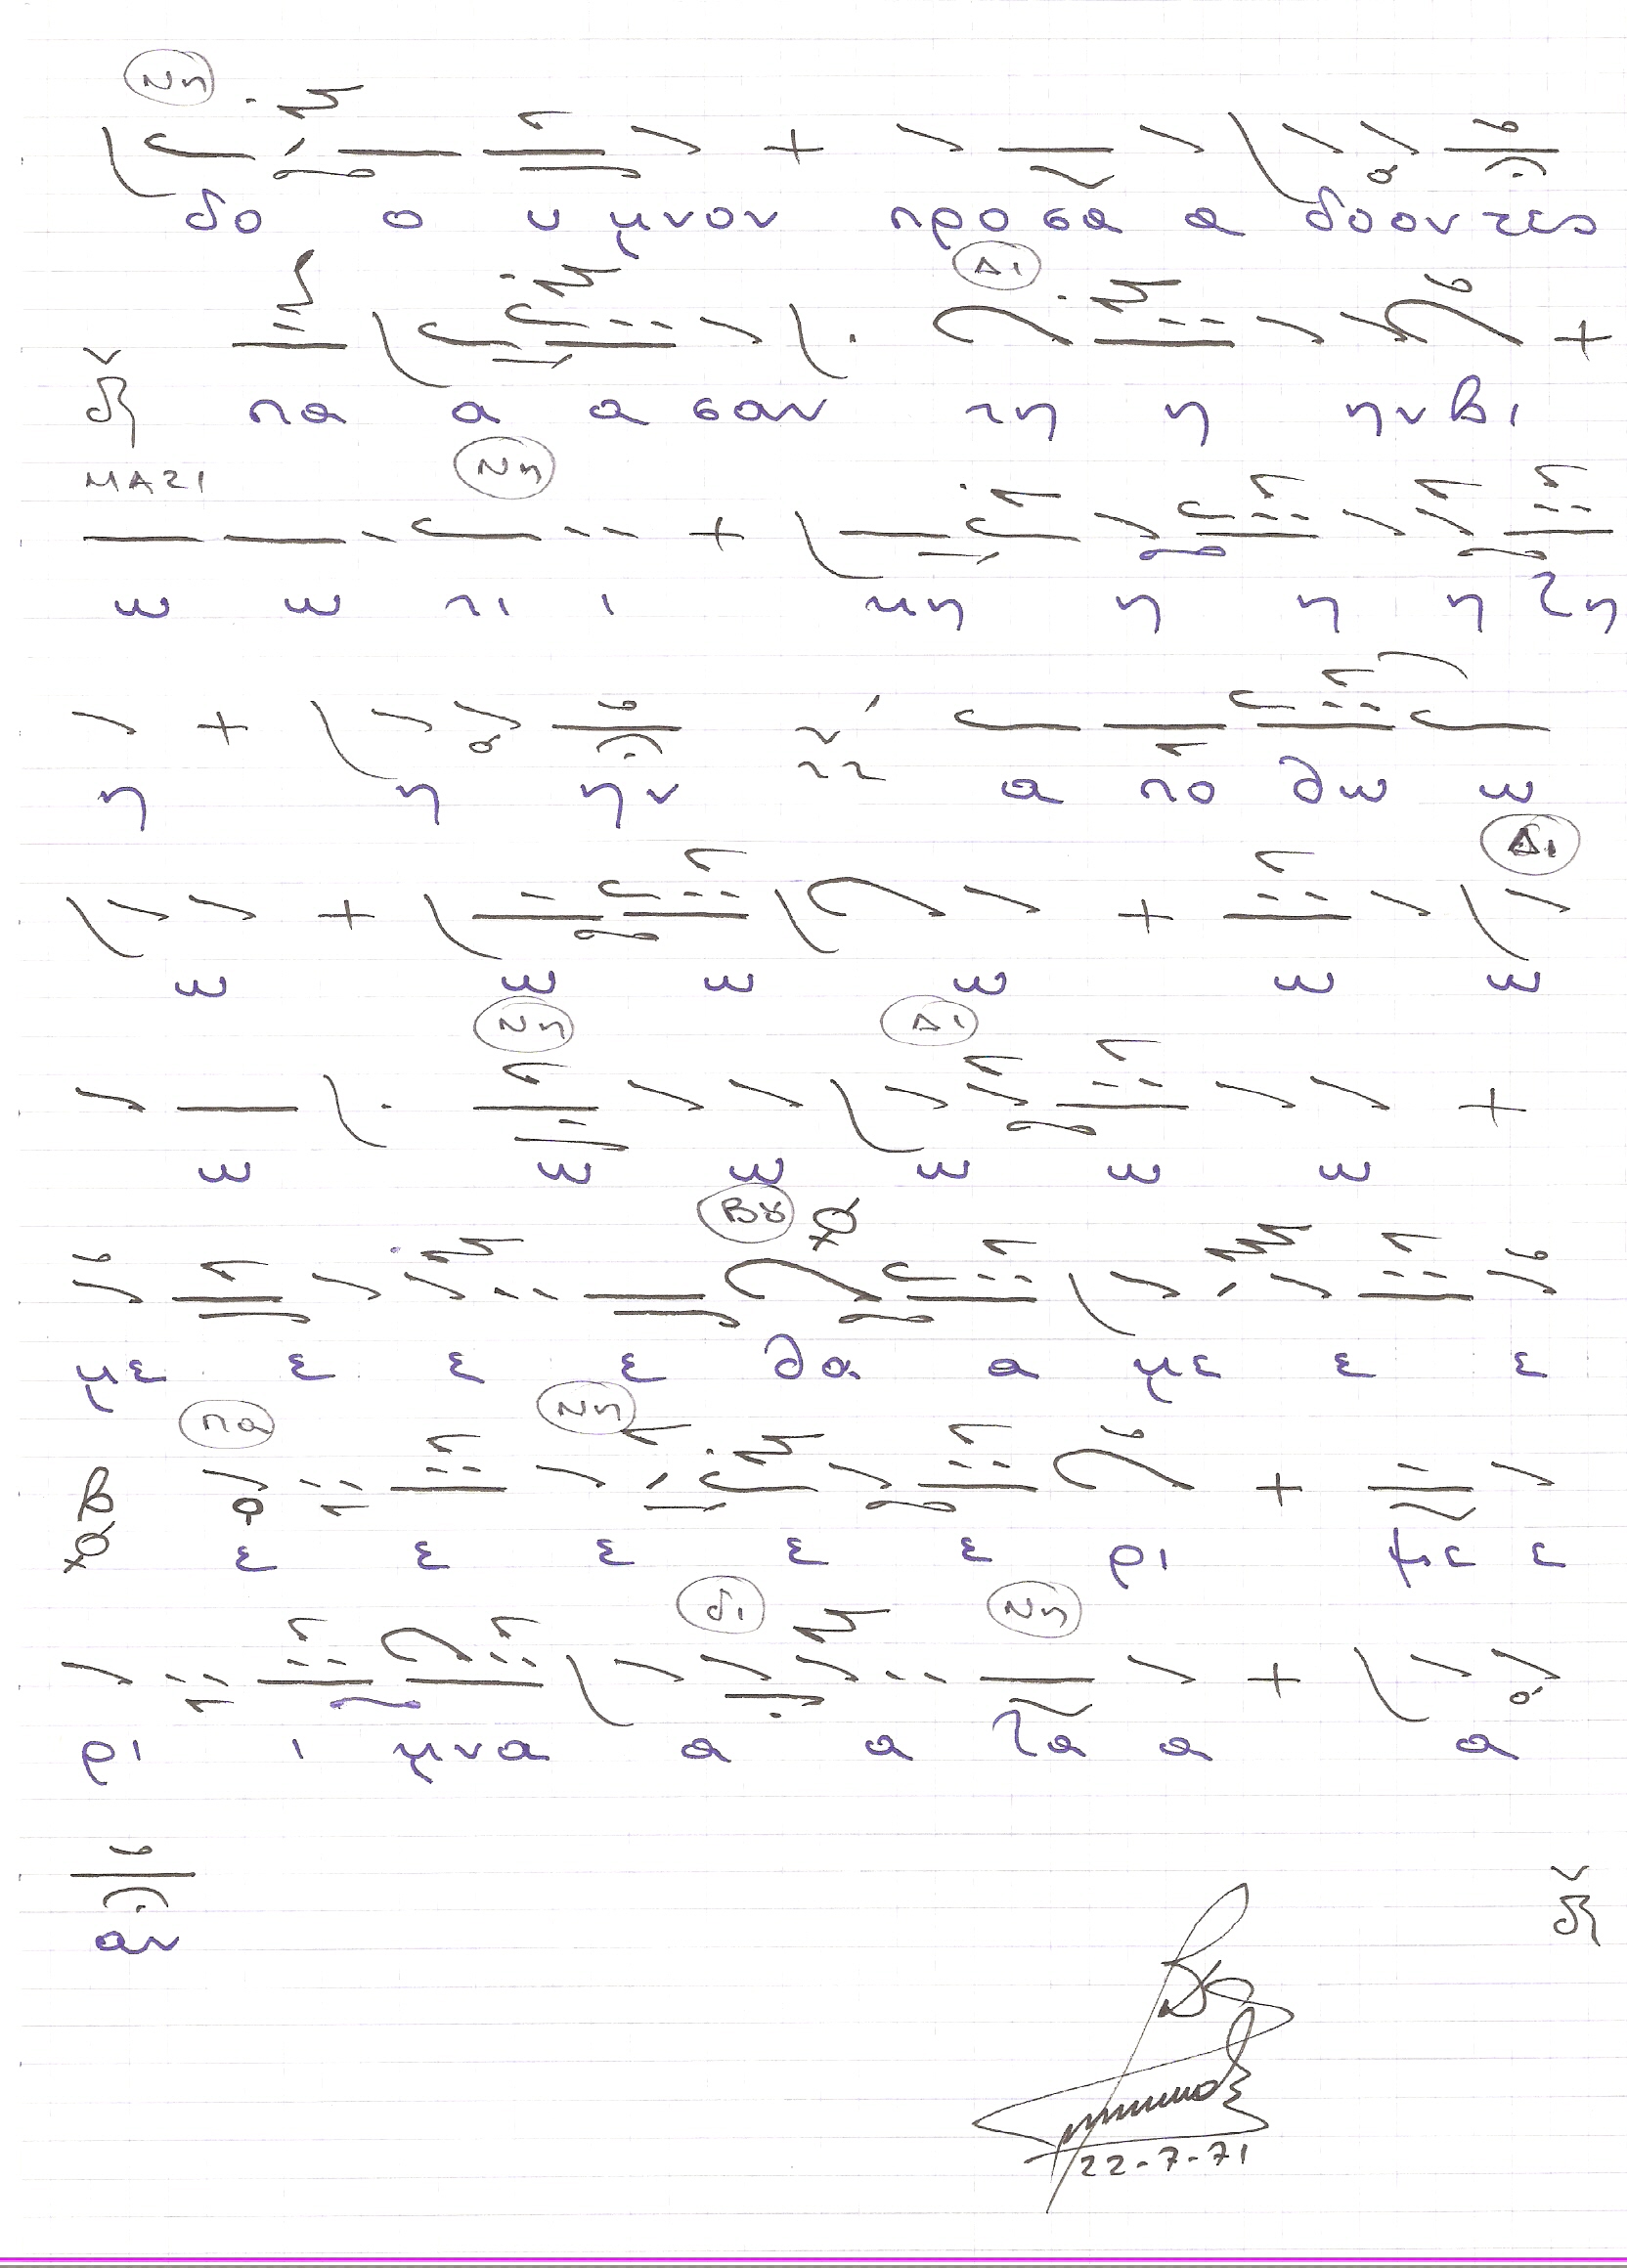 Νη
δο ο υ μνον προσα α δοον τες
Δι
δι πα α α σαν τη η ην βι
ΜΑΖΙ Νη
ω ω τι ι μη η η η τη
η η ην α πο θω ω
Δι
ω ω ω ω ω ω
Νη Δι
ω ω ω ω ω ω
Βȣ
με ε ε ε θα α με ε ε
πα Νη
β ε ε ε ε ε ρι με ε
δι Νη
ρι ι μνα α α τα α α
αν δι
22-7-71